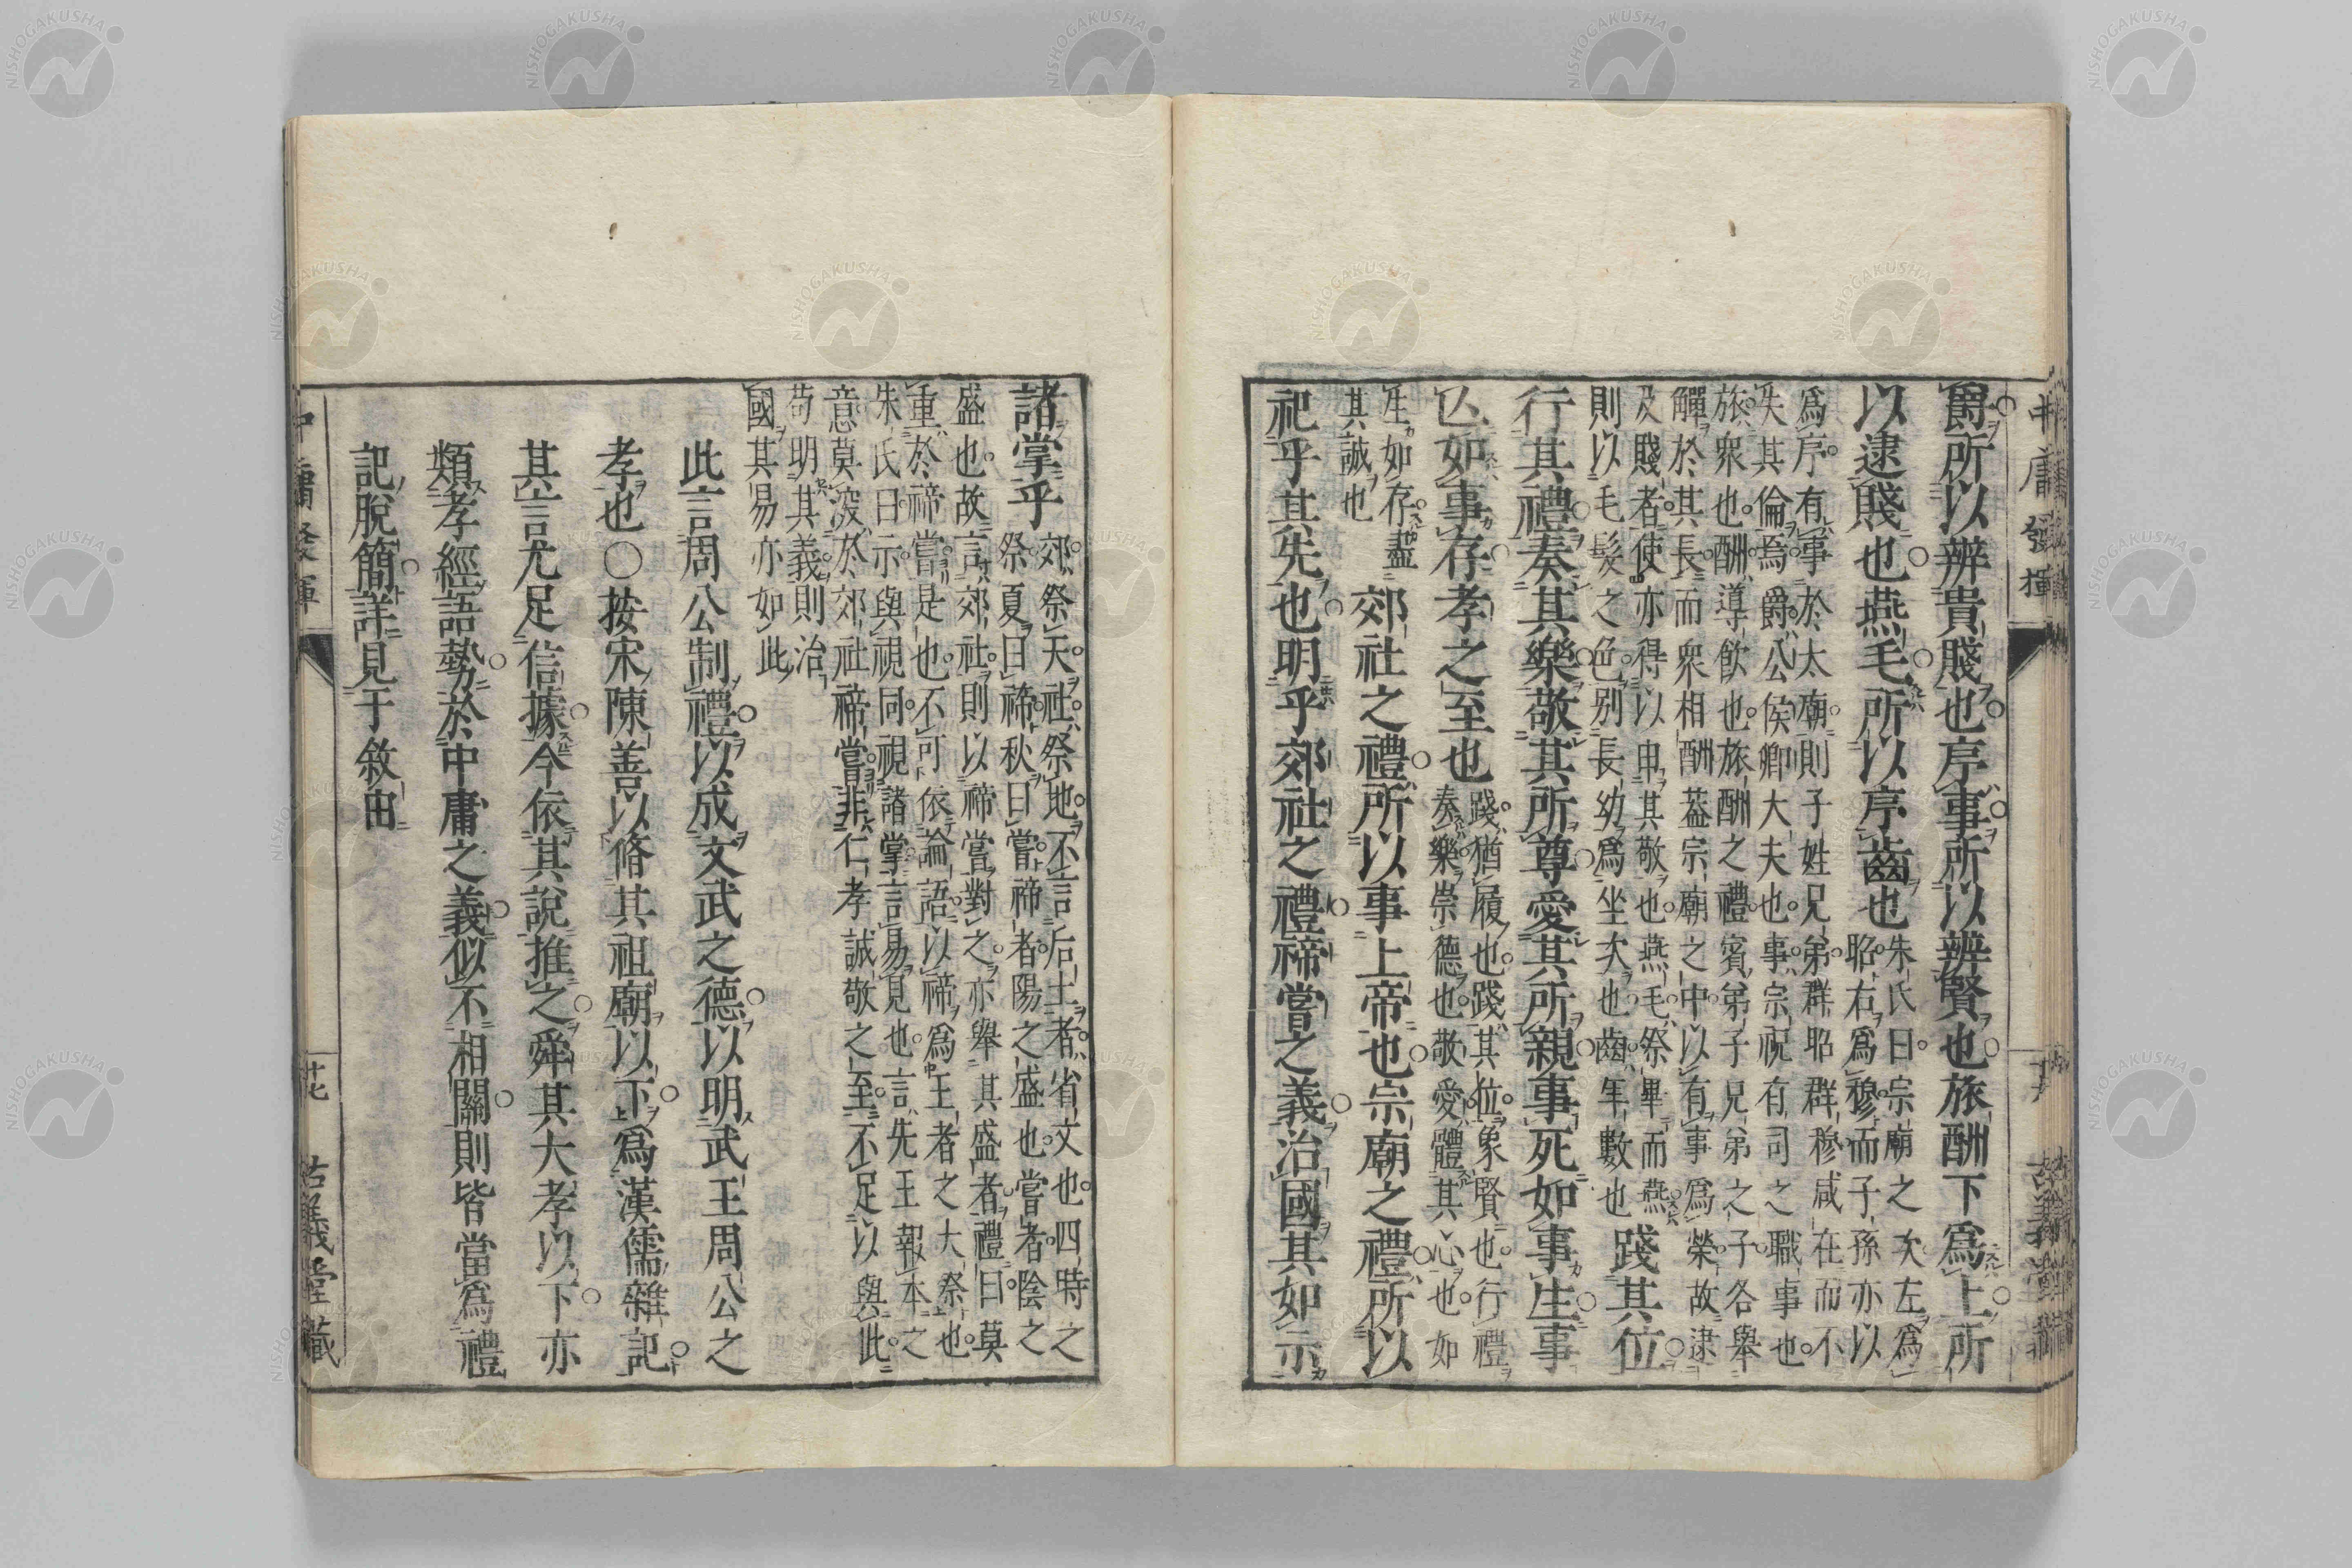 爵所以辨貴賤也序事所以辨賢也旅酬下爲上所
以逮賤也燕毛所以序齒也
朱氏曰宗廟之次左爲
昭右爲穆而子孫亦以
爲序有事於太廟則子姓兄弟群昭群穆咸在而不
失其倫焉爵公侯卿大夫也事宗祝有司之職事也
旅衆也酬導飮也旅酬之禮賓弟子兄弟之子各舉
觶於其長而衆相酬葢宗廟之中以有事爲榮故逮
及賤者使亦得以申其敬也燕毛祭畢而燕
則以毛髮之色別長幼爲坐次也齒年數也
踐其位
行其禮奏其樂敬其所尊愛其所親事死如事生事
亾如事存孝之至也
踐猶履也踐其位象賢也行禮
奏樂崇德也敬愛體其心也如
生如存盡
其誠也
郊社之禮所以事上帝也宗廟之禮所以
祀乎其先也明乎郊社之禮禘嘗之義治國其如示
中庸發揮
古義堂藏
諸掌乎
郊祭天社祭地不言后土者省文也四時之
祭夏曰禘秋曰嘗禘者陽之盛也嘗者陰之
盛也故言郊社則以禘嘗對之亦舉其盛者禮曰莫
重於禘嘗是也不可依論語以禘爲王者之大祭也
朱氏曰示與視同視諸掌言易見也言先王報本之
意莫深於郊社禘嘗非仁孝誠敬之至不足以與此
苟明其義則治
國其易亦如此
此言周公制禮以成文武之德以明武王周公之
孝也〇按宋陳善以脩其祖廟以下爲漢儒雜記
其言尤足信據今依其說推之舜其大孝以下亦
類孝經語勢於中庸之義似不相關則皆當爲禮
記脫簡詳見于敘由
中庸發揮
廿七
古義堂藏
NISHOGAKUSHA